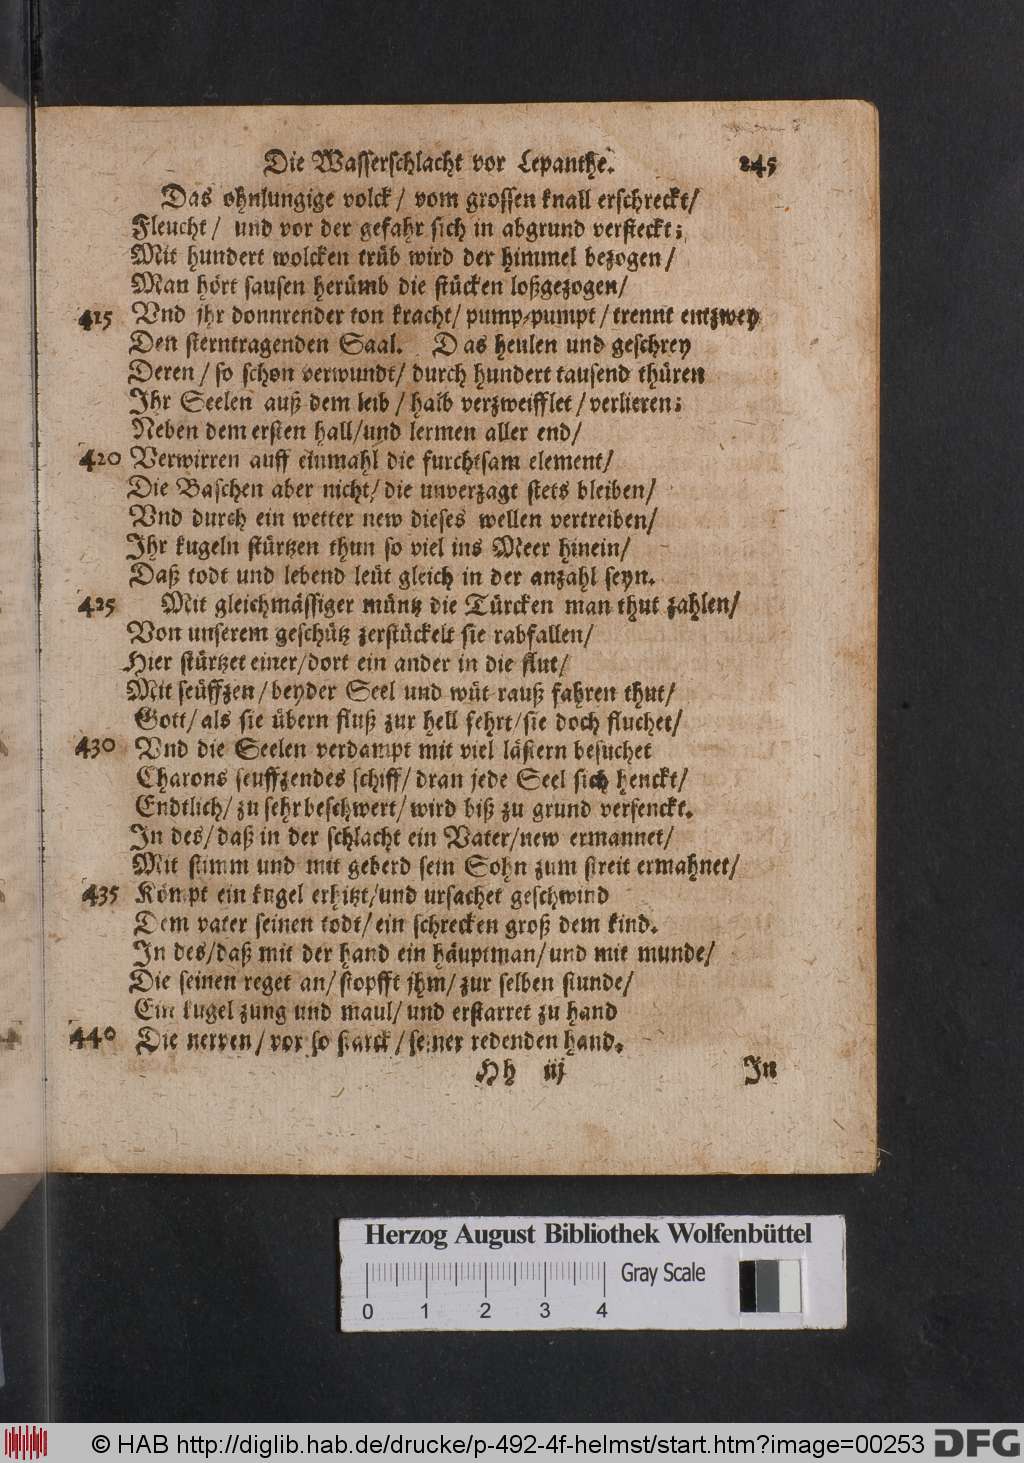 Die Wasserschlacht vor Lepanthe. 245
Das ohnlungige volck / vom grossen knall erschreckt /
Fleucht / und vor der gefahr sich in abgrund versteckt;
Mit hundert wolcken trüb wird der himmel bezogen /
Man hört sausen herümb die stücken loßgezogen /
415 Vnd jhr donnrender ton kracht / pump-pumpt / trennt entzwey
Den sterntragenden Saal. Das heulen und geschrey
Deren / so schon verwundt / durch hundert tausend thüren
Ihr Seelen auß dem leib / halb verzweifflet / verlieren;
Neben dem ersten hall / und lermen aller end /
420 Verwirren auff einmahl die furchtsam element /
Die Baschen aber nicht / die unverzagt stets bleiben /
Vnd durch ein wetter new dieses wellen vertreiben /
Ihr kugeln stürtzen thun so viel ins Meer hinein /
Daß todt und lebend leüt gleich in der anzahl seyn.
425 Mit gleichmässiger müntz die Türcken man thut zahlen /
Von unserem geschütz zerstückelt sie rabfallen /
Hier stürtzet einer / dort ein ander in die flut /
Mit seüffzen / beyder Seel und wüt rauß fahren thut /
Gott / als sie übern fluß zur hell fehrt / sie doch fluchet /
430 Vnd die Seelen verdampt mit viel lästern besuchet
Charons seuffzendes schiff / dran jede Seel sich henckt /
Endtlich / zu sehr beschwert / wird biß zu grund versenckt.
In des / daß in der schlacht ein Vater / new ermannet /
Mit stimm und mit geberd sein Sohn zum streit ermahnet /
435 Kömpt ein kugel erhitzt / und ursachet geschwind
Dem vater seinen todt / ein schrecken groß dem kind.
In des / daß mit der hand ein häuptman / und mit munde /
Die seinen reget an / stopfft jhm / zur selben stunde /
Ein kugel zung und maul / und erstarret zu hand
440 Die nerven / vor so starck / seiner redenden hand.
Hh iij In
Herzog August Bibliothek Wolfenbüttel
Gray Scale
0 1 2 3 4
© HAB http://diglib.hab.de/drucke/p-492-4f-helmst/start.htm?image=00253 DFG